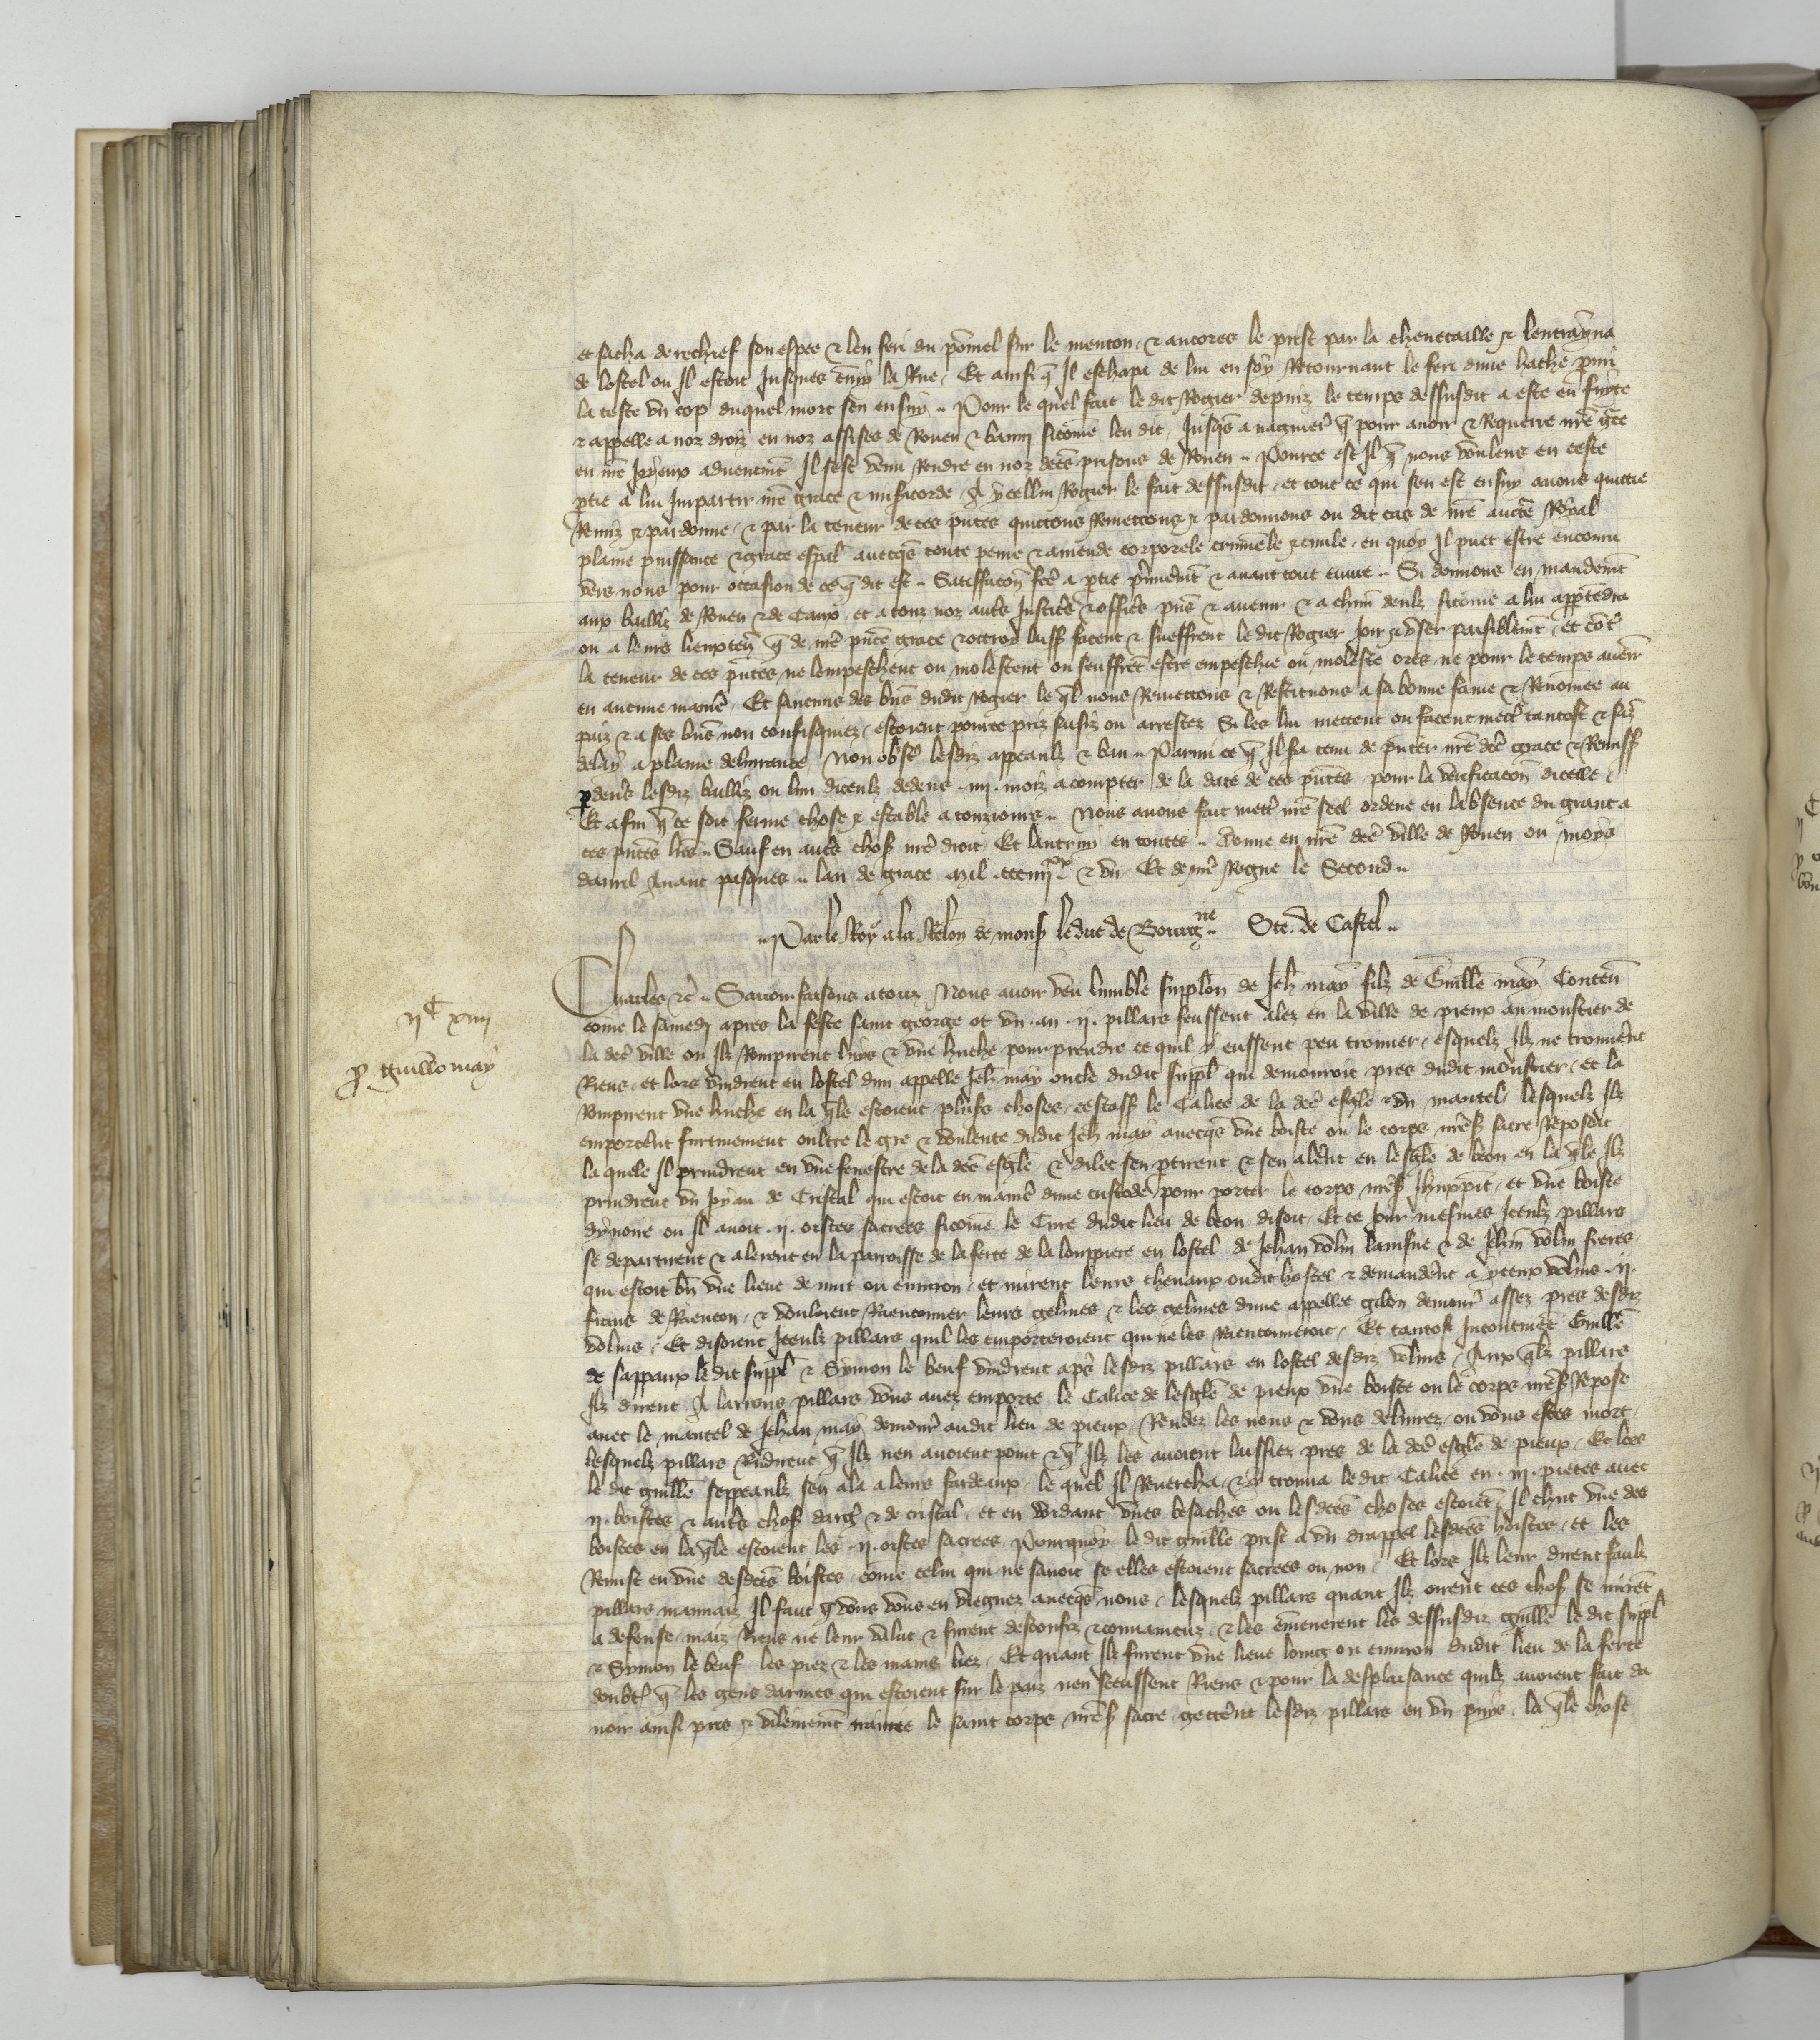 et sacha derechief son espee & len feri du pomel sur le menton & ancores le prist par la chevecaille & lentrayna
de lostel ou Il estoit Jusques emy la Rue. Et ainsi q̄ Il eschapa de lui en soy Retournant le feri dune hache parmi
la teste un cop duquel mort sen ensuy. Pour le quel fait le dit Rogier depuiz le temps dessusdit a este en fuyte
& appelle a noz droiz en noz assises de Rouen & bannj sicōme len dit. Jusq̄s a nagueres q̄ pour avoir & Requerre nr̄e grace
en nr̄e joyeux advenemēt Il sest venu Rendre en noz dictes prisons de Rouen. Pource est Il q̄ nous voulens en ceste
partie a lui Impartir nr̄e grace & misericorde A ycellui Rogier le fait dessusdit et tout ce qui sen est ensuy avons quictie
Remiz & pardonne & par la teneur de ces pñtes quictons Remectons & pardonnons ou dit cas de nr̄e auctē Royal
plaine puissance & grace espāl avecq̄s toute peine & amende corporele crimiele & civile en quoy Il puet estre encouru
vers nous pour occasion de ce q̄ dit est. Satisfacōn fcē a ptie p̄mieremēt & avant tout euvre. Si donnons en mandemēt
aux bailliz de Rouen & de Caux et a touz noz autres Justicēs & officēs pñs & avenir & a chūn deulx sicōme a lui app̄tēdra
ou a leurs lieuxten̄ q̄ de nr̄e pñte grace & ottroy laissent facent & sueffrent le dit Rogier joir & user paisiblemēt et cōtre
la teneur de ces pñtes ne lempeschent ou molestent ou seuffrēt estre empeschie ou moleste ores ne pour le temps avenir
en aucune manie. Et saucuns des biēs dudit Rogier le q̄l nous Remettons & Restituons a sa bonne fame & Renōmee au
paiz & a ses biēs non confisquiez estoient pource priz saisiz ou arrestez Si les lui mettent ou facent mectre tantost & sanz
delay a plaine delivrance Non obstāt lesdiz appeaulx & ban. Parmi ce q̄ Il sa tenu de pñter nr̄e dcē grace & Remiss
p devers lesdiz bailliz ou lun diceulx dedens .iiij. mois a compter de la date de ces pñtes pour la verificacōn dicelle.
Et afin q̄ ce soit ferme chose & estable a touzjours. Nous avons fait mectre nr̄e seel ordene en labsence du grant a
ces pñtes lr̄es. Sauf en autres chos nr̄e droit Et lautruy en toutes. Donne en nr̄e dcē ville de Rouen ou moys
davril Avant pasques. lan de grace mil ccc iiijxx & un Et de nr̄e Regne le Second.
Par le Roy a la Relōn de mons le duc de Bourgne. Ste. de Castel.
Charles &c̄. Savoir faisons a touz Nous avoir veu lumble supplōn de Jeh̄ may filz de Guille may Conten̄
cōme le samedj apres la feste saint george ot un an .ij. pillars feussent alez en la ville de pieux au moustier de
la dcē ville ou Ilz Rompirent luys & une huche pour prendre ce quil y eussent peu trouver esquelz Ilz ne trouverēt
Riens et lors vindrent en lostel dun appelle Jeh̄ may oncle dudit suppl̄ qui demouroit pres dudit moustier et la
Rompirent une huche en la q̄le estoient plusrs choses cestass le Calice de la dcē esgle & un mantel lesquelz Ilz
emporterēt furtivement oultre le gre & voulente dudit Jeh̄ may avecq̄s une boiste ou le corps nr̄es sacre Reposoit
la quele Il prindrent en une fenestre de la dcē esgle & dilec sen p̄tirent & sen alerēt en lesgle de beon en la q̄le Ilz
prindrent un joyau de Cristal qui estoit en manie dune custode pour porter le corps nr̄es Jhuxpit et une boiste
dyvoire ou Il avoit .ij. oistes sacrees sicōme le Cure dudit lieu de beon disoit. Et ce Jour mesmes Iceulx pillars
se departirent & alerent en la parroisse de la ferte de la louppiere en lostel de Jehan volin lainsne & de Jehin volin freres
qui estoit bn̄ une lieue de nuit ou environ et mirent leurs chevaux oudit hostel & demanderēt a yceux volins .ij.
frans de Raencon & vouloient Raenconner leurs gelines & les gelines dune appellee gilon demour assez pres desdiz
volins. Et disoient Iceulx pillars quil les emporteroient qui ne les Raenconneroit. Et tantost Incontinēt Guille
de sappaux le dit suppl̄ & Symon le beuf vindrent aprs lesdiz pillars en lostel desdiz volins Aux q̄lz pillars
Ilz dirent A larrons pillars vous avez emporte le Calice de lesgle de pieux une boiste ou le corps nr̄es Repose
avec le mantel de Jehan may demour audit lieu de pieux Rendez les nous & vous delivrez ou vous estes mort.
Lesquelz pillars Rndirent q̄ Ilz nen avoient point & q̄ Ilz les avoient laissiez pres de la dcē esgle de pieux. Et lors
le dit guille seppeaulx sen ala a leurs fardeaux le quel Il Revercha & y trouva le dit Calice en .iij. pieces avec
ij. boistes & autrs chos dargt & de cristal et en vuidant unes besaches ou lesdcēs choses estoiēt Il chut une des
boistes en la q̄le estoient les .ij. oistes sacrees Pourquoy le dit guille prist a un drappel lesdcēs hoistes et les
Remist en une desdcēs boistes cōme celui qui ne savoit se elles estoient sacrees ou non. Et lors Ilz leur dirent faulx
pillars mauvaiz Il faut q̄ vous vous en viegnez avecq̄s nous. lesquelz pillars quant Ilz oirent ces chos se mirēt
a defense maiz Riens ne leur valut & furent desconfiz & convaincuz & les ēmenerent les dessusdiz guille le dit suppl̄
& Symon le beuf les piez & les mains liez. Et quant Ilz furent une lieue loing ou environ dudit lieu de la ferte
doubtēs q̄ les gens darmes qui estoient sur le paiz nen sceussent Riens & pour la desplaisance quilz avoient fait da
voir ainsi pris & vilemeēt traictee le saint corps nr̄es sacre getterēt lesdiz pillars en un puis. la q̄le chose
ijC xiiij
p̄ guillo may